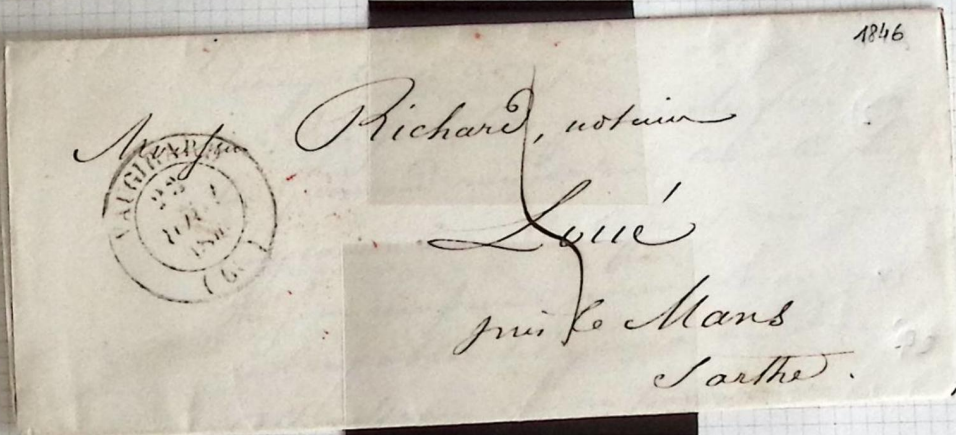 1846
Monsieur Richard, notaire
Loué
près le Mans
Sarthe.
VAUGIRARD
22
(60)